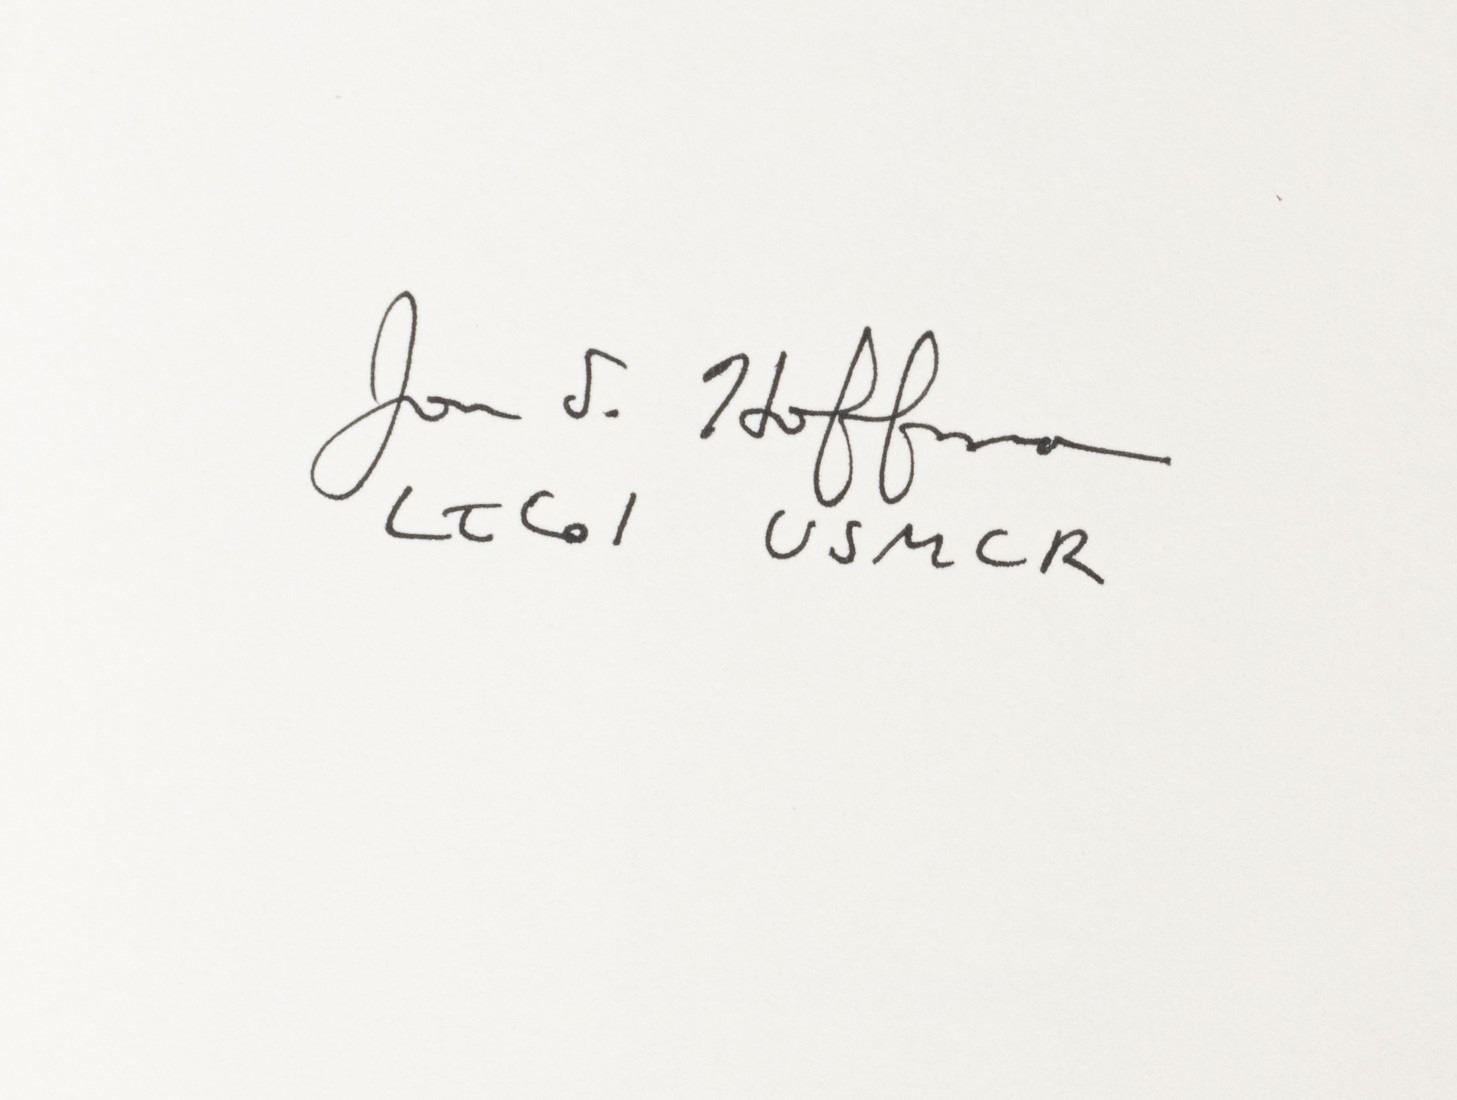 Jon T. Hoffman
LtCol USMCR